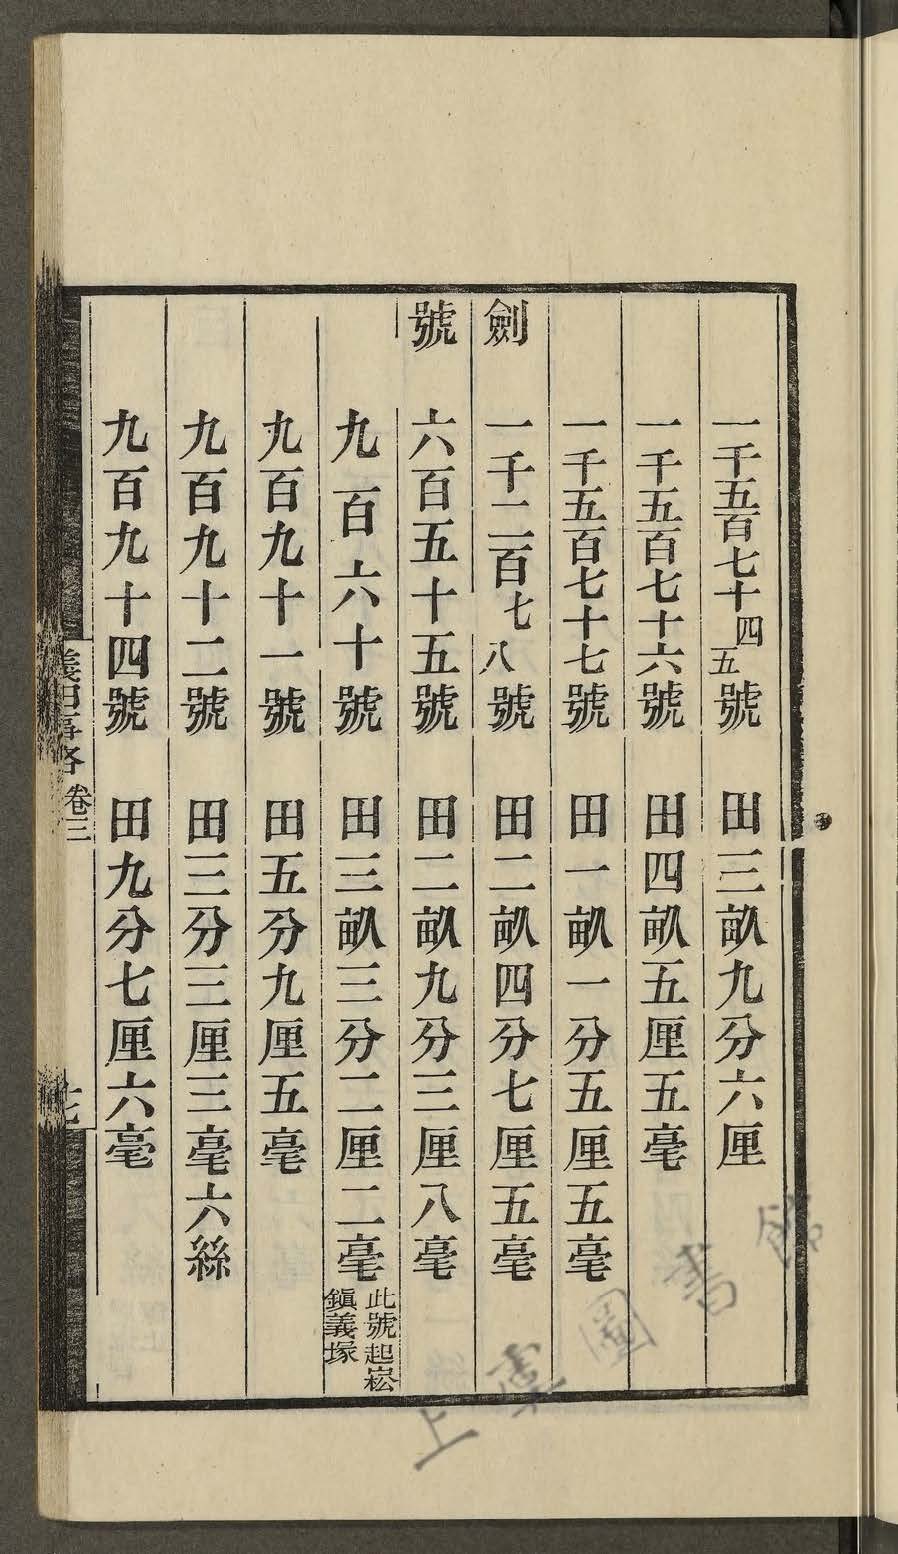 一千五百七十四五號　田三畝九分六厘
一千五百七十六號　田四畝五厘五毫
一千五百七十七號　田一畝一分五厘五毫
劍　一千二百七八號　田二畝四分七厘五毫
號　六百五十五號　田二畝九分三厘八毫
九百六十號　田三畝三分二厘二毫此號起崧鎭義塚
九百九十一號　田五分九厘五毫
九百九十二號　田三分三厘三毫六絲
九百九十四號　田九分七厘六毫
義田事略　卷三
上虞圖書館